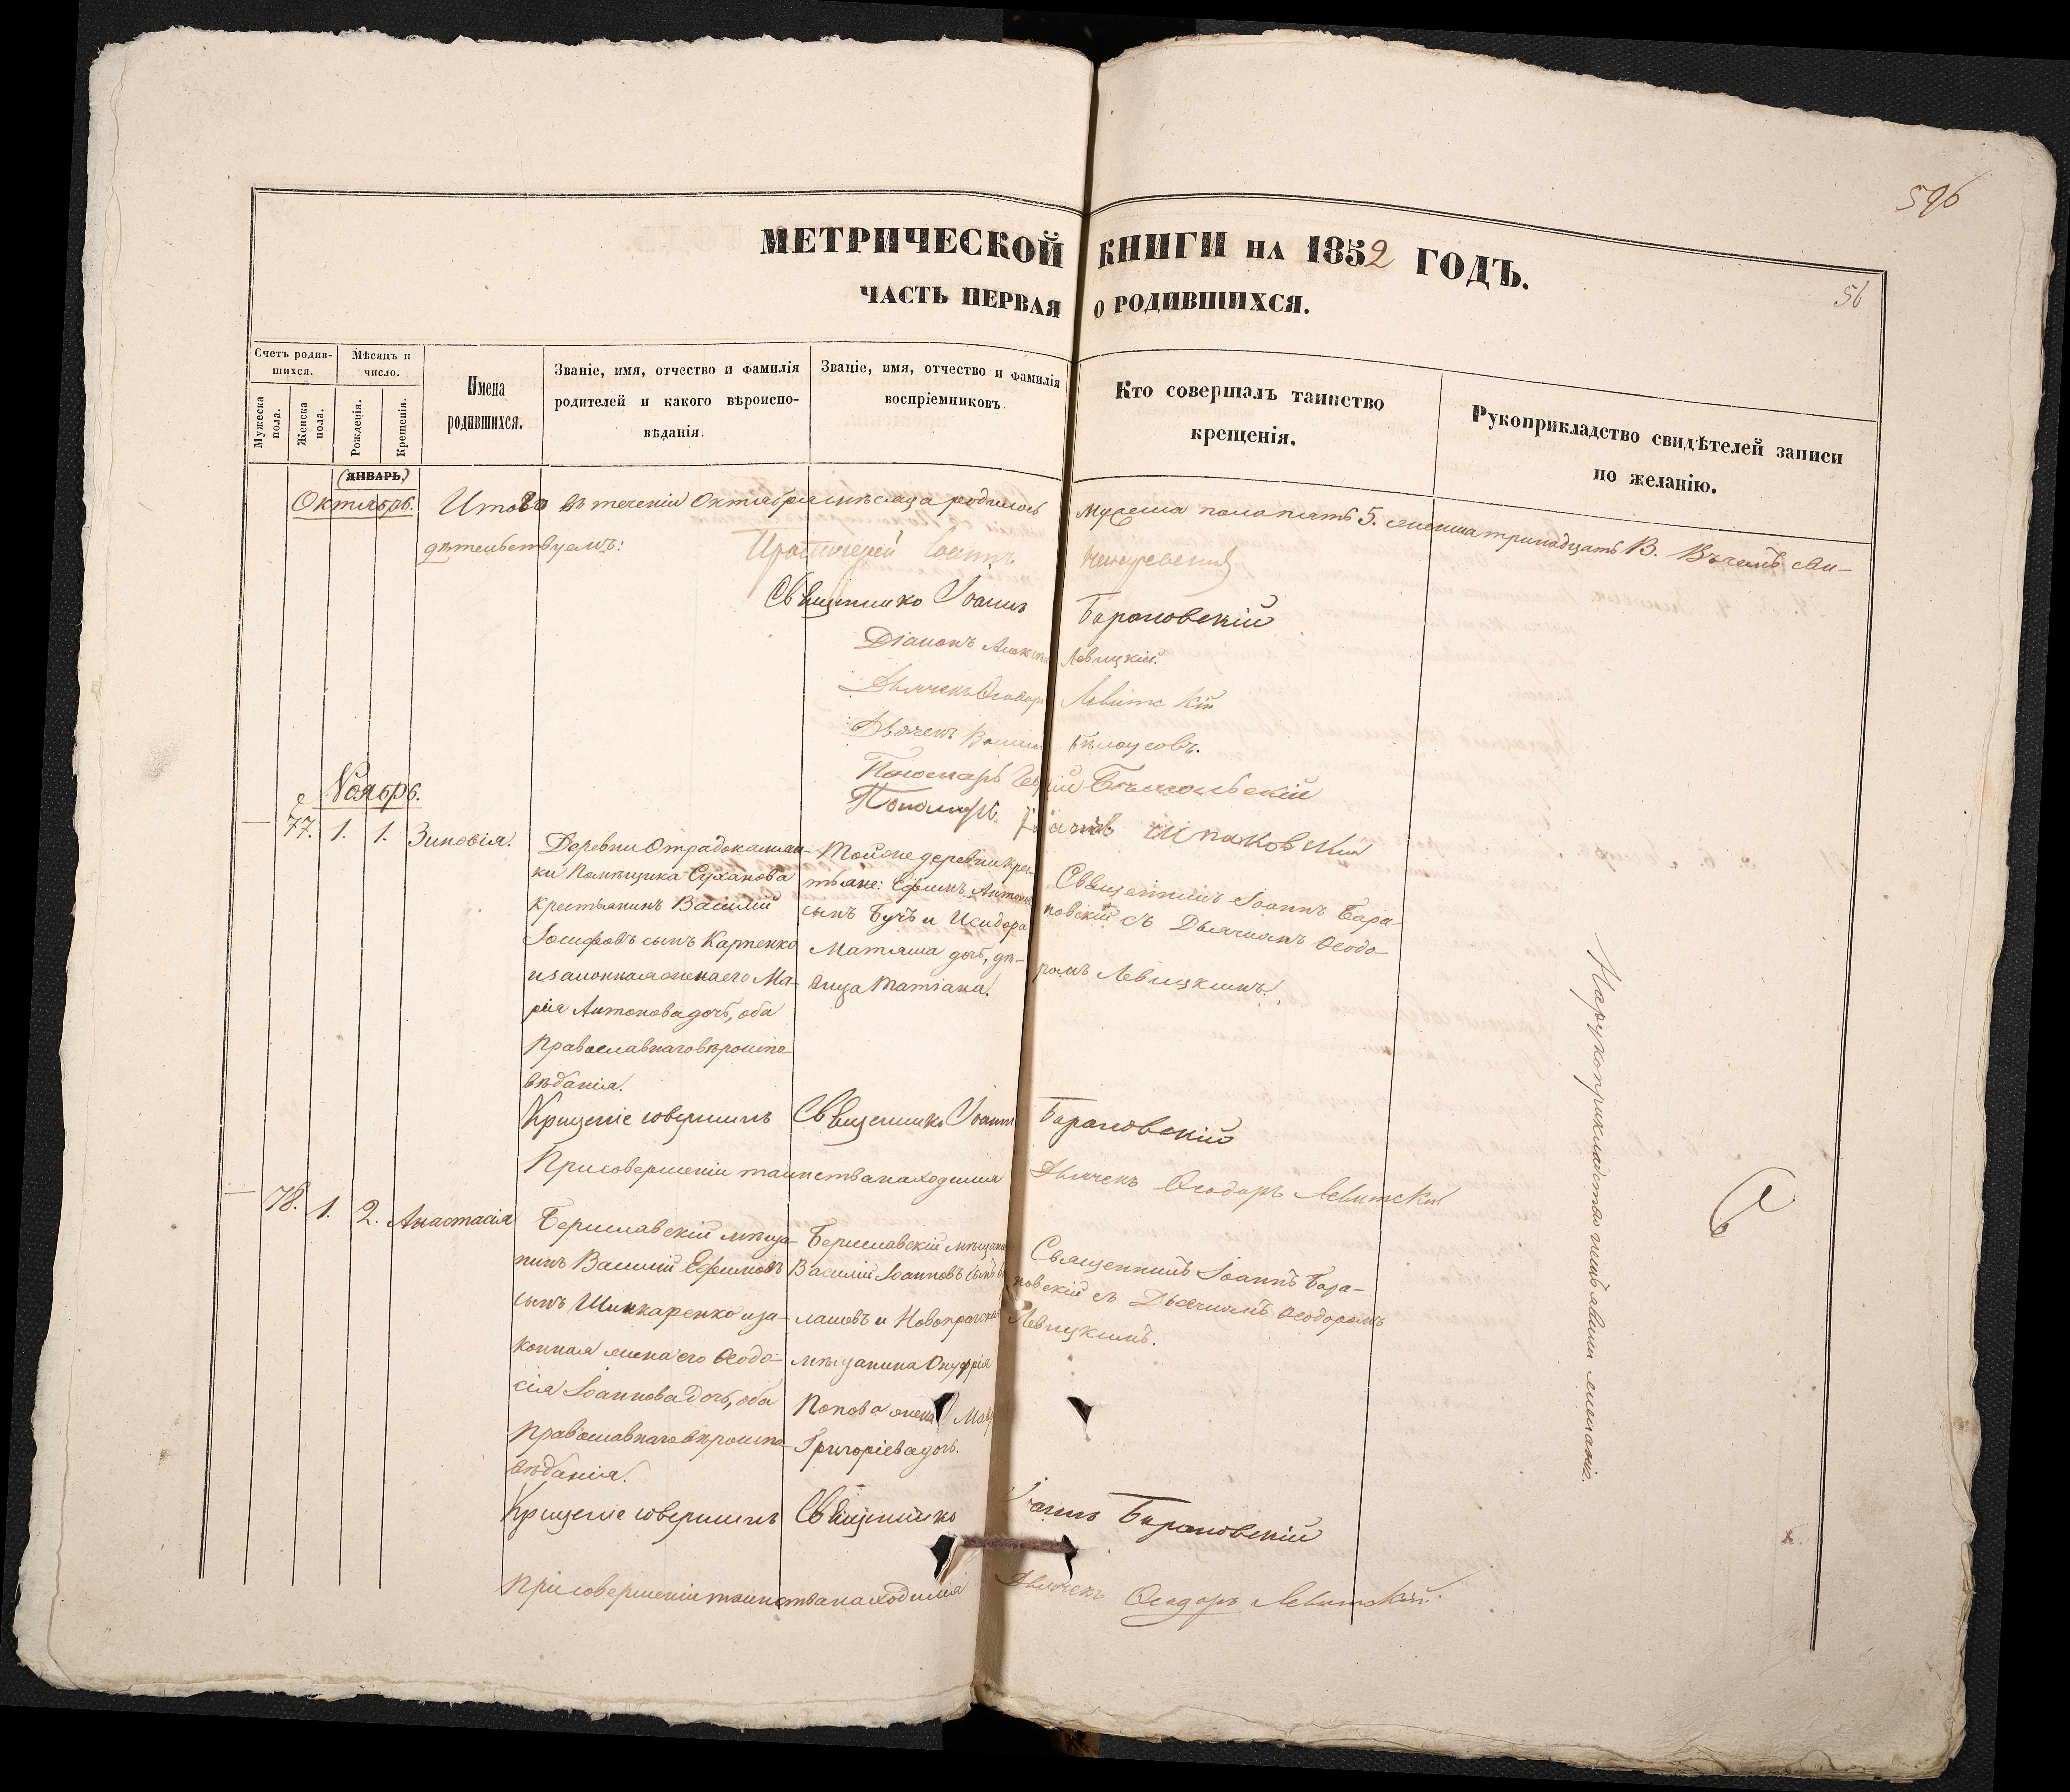 596
МЕТРИЧЕСКОЙ КНИГИ НА 1852 ГОДЪ.
ЧАСТЬ ПЕРВАЯ О РОДИВШИХСЯ.
56
Счетъ родив-
шихся.
Мѣсяцъ и
число.
Мужеска
пола.
Женска
пола.
Рожденія.
Крещенія.
Имена
родившихся.
Званіе, имя, отчество и фамилія
родителей и какого вѣроиспо-
вѣданія.
Званіе, имя, отчество и фамилія
воспріемниковъ
Кто совершалъ таинство
крещенія.
Рукоприкладство свидѣтелей записи
по желанію.
(ЯНВАРЬ,)
Октябрь.
Итого въ теченіи Октября мѣсяца родилось мужеска пола пять 5. женска тринадцать 13. Въ чемъ сви-
дѣтельствуемъ:
Протоіерей
Священникъ Іоаннъ Барановскій
Діаконъ Левицкій.
Дьячекъ Ѳеодоръ Левитскій
Дьячекъ Бѣлоусовъ.
Пономарь
Пономарь
Ноябрь.
77. 1. 1. Зиновія.
Деревни Отрадокамян-
ки Помѣщика Суханова
крестьянинъ Василій
Іосифовъ сынъ Карпенко
и законная жена его Ма-
рія Антонова дочь, оба
православнаго вѣроиспо-
вѣданія.
Той же деревни крес-
тьяне: Ефимъ Антоновъ
сынъ Бучъ и Исидора
Матяша дочь, дѣ-
вица Татіана.
Священникъ Іоаннъ Бара-
новскій съ Дьячкомъ Ѳеодо-
ромъ Левицкимъ.
Крещеніе совершилъ Священникъ Іоаннъ Барановскій
При совершеніи таинства находился Дьячекъ Ѳеодоръ Левитскій
78. 1. 2. Анастасія
Бериславскій мѣща-
нинъ Василій Ефимовъ
сынъ Шинкаренко и за-
конная жена его Ѳеодо-
сія Іоаннова дочь, оба
православнаго вѣроиспо-
вѣданія.
Бериславскій мѣщанинъ
Василій Іоанновъ сынъ
и
мѣщанина Онуфрія
Попова жена
Григоріева дочь.
Священникъ Іоаннъ Бара-
новскій съ Дьячкомъ Ѳеодоромъ
Левицкимъ.
Крещеніе совершилъ Священникъ Іоаннъ Барановскій
При совершеніи таинства находился Дьячекъ Ѳеодоръ Левитскій.